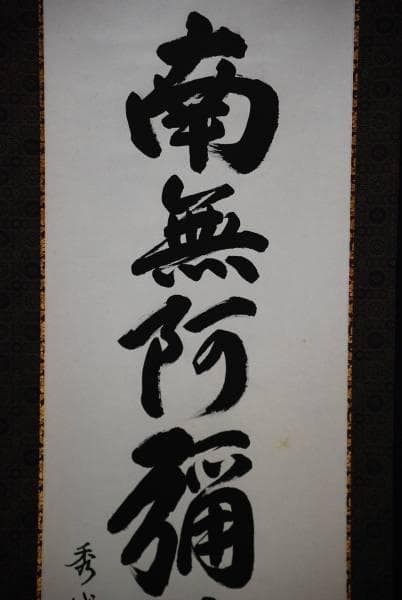 南無阿彌
秀